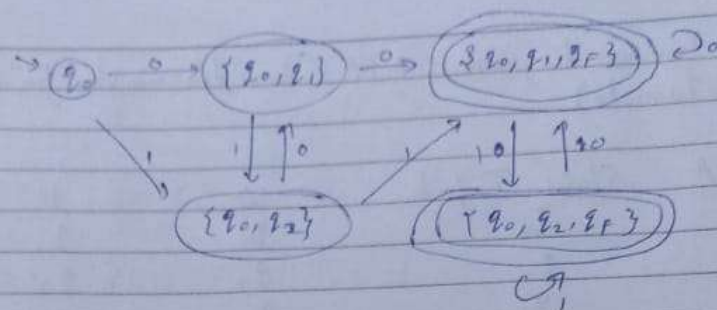 q0 0 {q0, q1} 0 {q0, q1, qF} 0
1 1 0 1 1 0 0
{q0, q2} {q0, q2, qF}
1